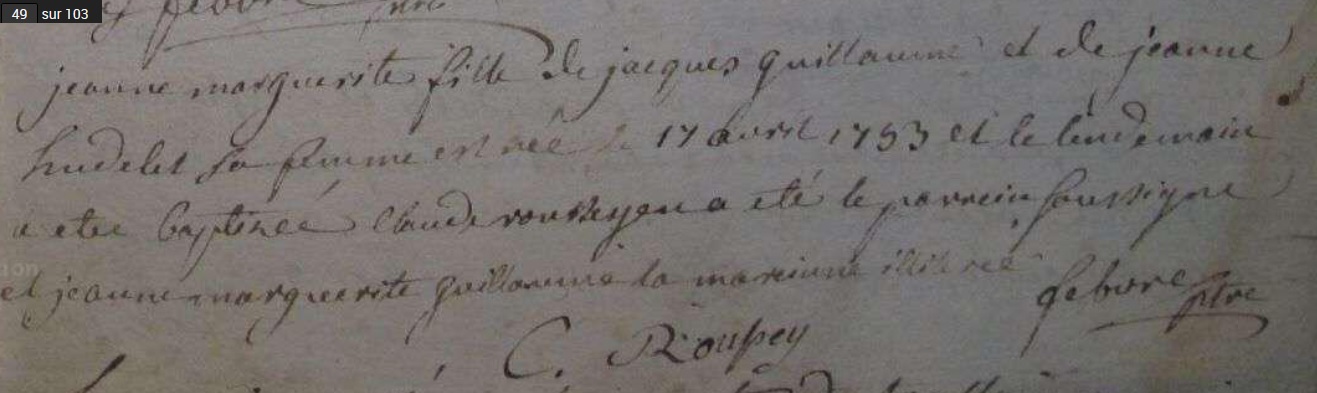 49 sur 103
jeanne marguerite fille de jacques guillaume et de jeanne
hudelet sa femme est née le 17 avril 1753 et le lendemain
a eteé baptiseé Claude rousseyeu a eté le parrein soussigne
et jeanne marguerite guillaume la mareinne illitereé
febvre ptre
C. Roussey